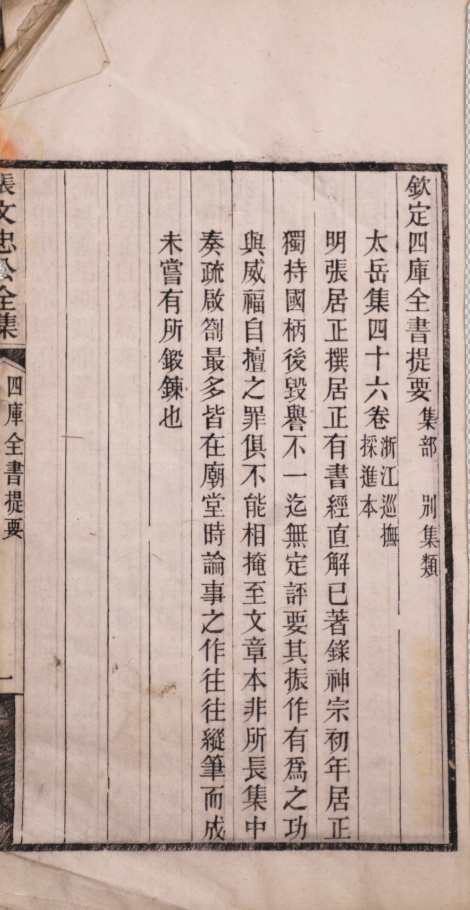 欽定四庫全書提要 集部 別集類
太岳集四十六卷 浙江巡撫採進本
明張居正撰居正有書經直解已著錄神宗初年居正
獨持國柄後毀譽不一迄無定評要其振作有為之功
與威福自擅之罪俱不能相掩至文章本非所長集中
奏疏啟劄最多皆在廟堂時論事之作往往縱筆而成
未嘗有所鍛鍊也
張文忠公全集 四庫全書提要 一